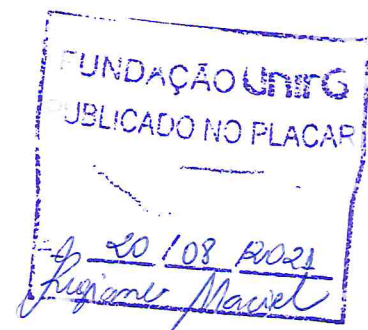 FUNDAÇÃO UnirG
PUBLICADO NO PLACAR
20 / 08 /2021
Maciel